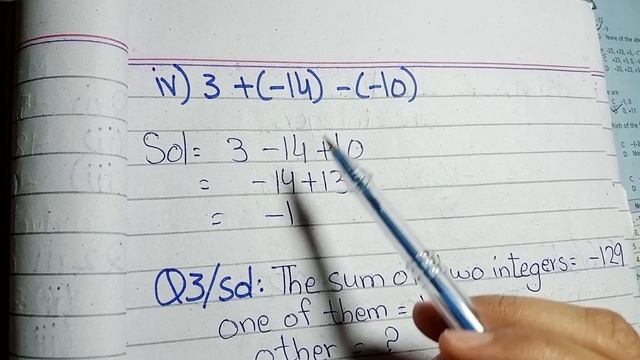 iv) 3 +(-14) -(-10)
Sol= 3 -14+10
= -14+13
= -1
Q3/Sol: The sum of two integers= -129
one of them =
other = ?